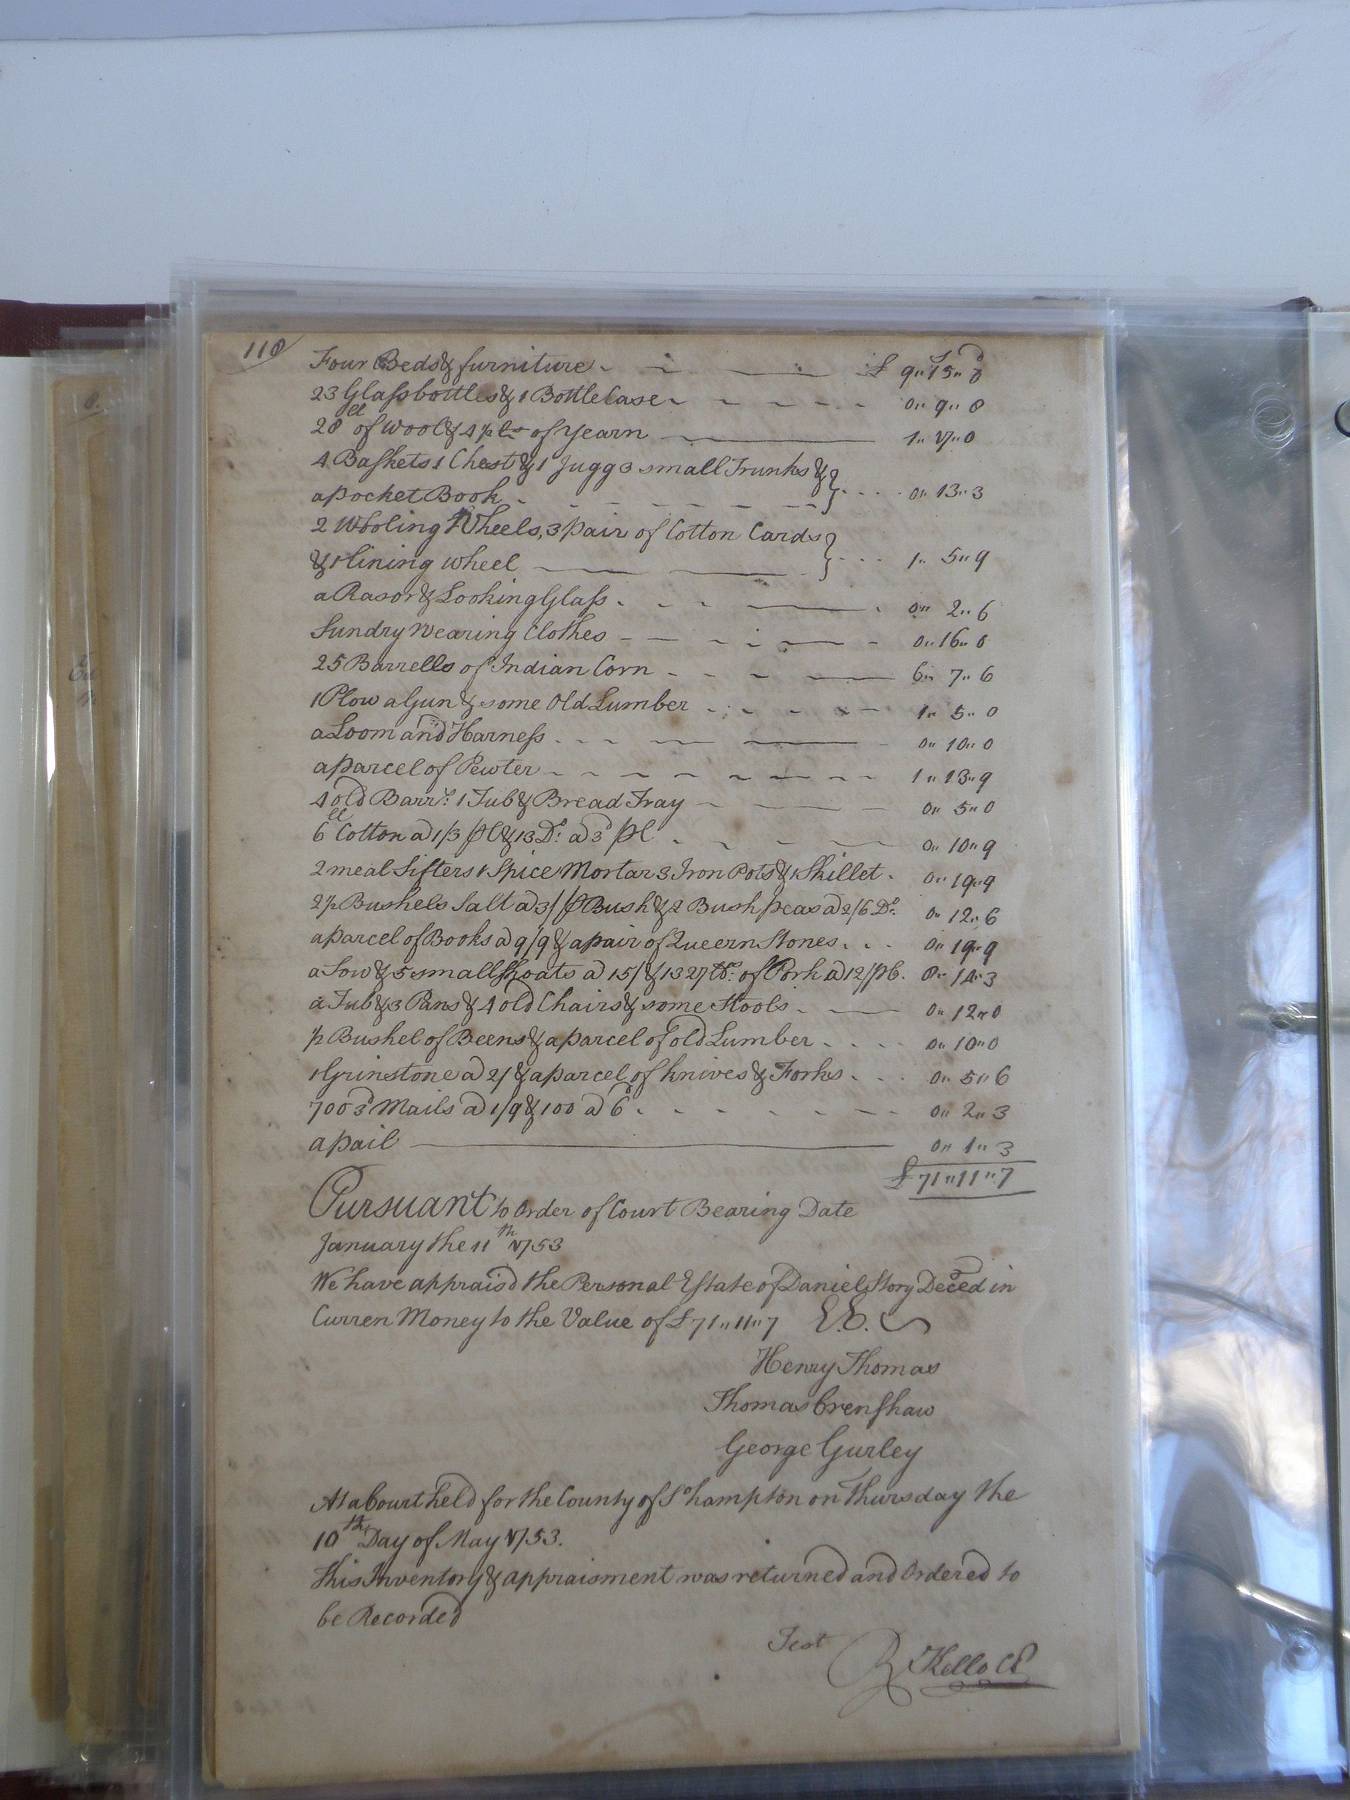 110
Four Beds & furniture £ 9" 15" 0
23 Glass bottles & 1 Bottle Case 0" 9" 0
28 lb of wool & 4½ lb of yearn 1" 7" 0
4 Baskets 1 Chest & 1 Jugg 3 small Trunks &
a pocket Book 0" 13" 3
2 Wooling Wheels, 3 pair of Cotton Cards
& 1 lining wheel 1" 5" 9
a Rasor & Looking Glass 0" 2" 6
Sundry Wearing Clothes 0" 16" 0
25 Barrells of Indian Corn 6" 7" 6
1 Plow a Gun & some Old Lumber 1" 5" 0
a Loom and Harness 0" 10" 0
a parcel of Pewter 1" 13" 9
4 old Barrs. 1 Tub & Bread Tray 0" 5" 0
6 lb Cotton a 1/3 pr & 13 Do. a 3d pr 0" 10" 9
2 meal Sifters 1 Spice Mortar 3 Iron Pots & 1 Skillet 0" 19" 9
2½ Bushels Salt a 3/ pr Bush & 2 Bush peas a 2/6 Do. 0" 12" 6
a parcel of Books a 9/9 & a pair of Queern Stones 0" 19" 9
a Sow & 5 small Shoats a 15/ & of Pork a 12/ 14" 3
a Tub & 3 Pans & 4 old Chairs & some Stools 0" 12" 0
½ Bushel of Beens & a parcel of old Lumber 0" 10" 0
1 Grinstone a 2/ & a parcel of knives & Forks 0" 5" 6
700 3d Nails a 1/9 & 100 a 6d 0" 2" 3
a pail 0" 1" 3
£ 71" 11" 7
Pursuant to Order of Court Bearing Date
January the 11th 1753
We have appraisd the Personal Estate of Daniel Story Deced in
Curren Money to the Value of £ 71" 11" 7 E. E.
Henry Thomas
Thomas Crenshaw
George Gurley
At a Court held for the County of Sohampton on Thursday the
10th Day of May 1753.
This Inventory & appraisment was returned and Ordered to
be Recorded
Test R Kello Cl